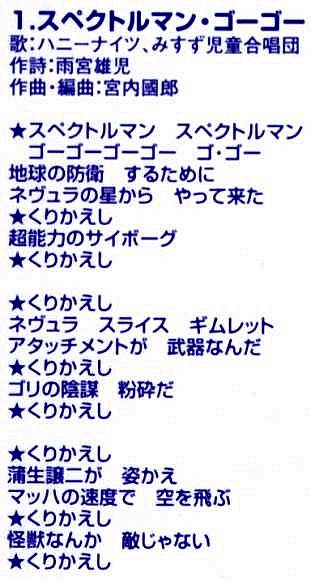 1.スペクトルマン・ゴーゴー
歌:ハニーナイツ、みすず児童合唱団
作詩:雨宮雄児
作曲・編曲:宮内國郎
★スペクトルマン　スペクトルマン
ゴーゴーゴーゴー　ゴ・ゴー
地球の防衛　するために
ネヴュラの星から　やって来た
★くりかえし
超能力のサイボーグ
★くりかえし
★くりかえし
ネヴュラ　スライス　ギムレット
アタッチメントが　武器なんだ
★くりかえし
ゴリの陰謀　粉砕だ
★くりかえし
★くりかえし
蒲生譲二が　姿かえ
マッハの速度で　空を飛ぶ
★くりかえし
怪獣なんか　敵じゃない
★くりかえし